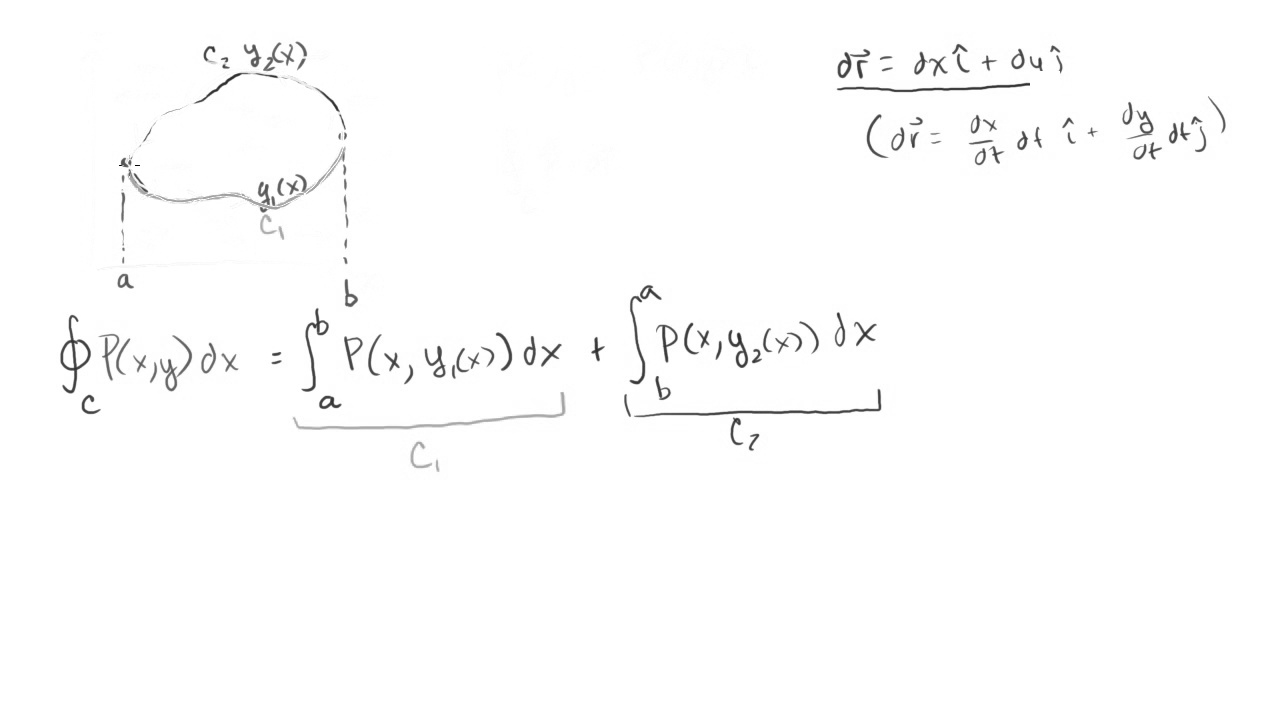 C₂ y₂(x)
y₁(x)
C₁
a
b
dr⃗ = dx î + dy ĵ
(dr⃗ = dx/dt dt î + dy/dt dt ĵ)
∮_C P(x,y) dx = ∫_a^b P(x, y₁(x)) dx + ∫_b^a P(x, y₂(x)) dx
C₁
C₂